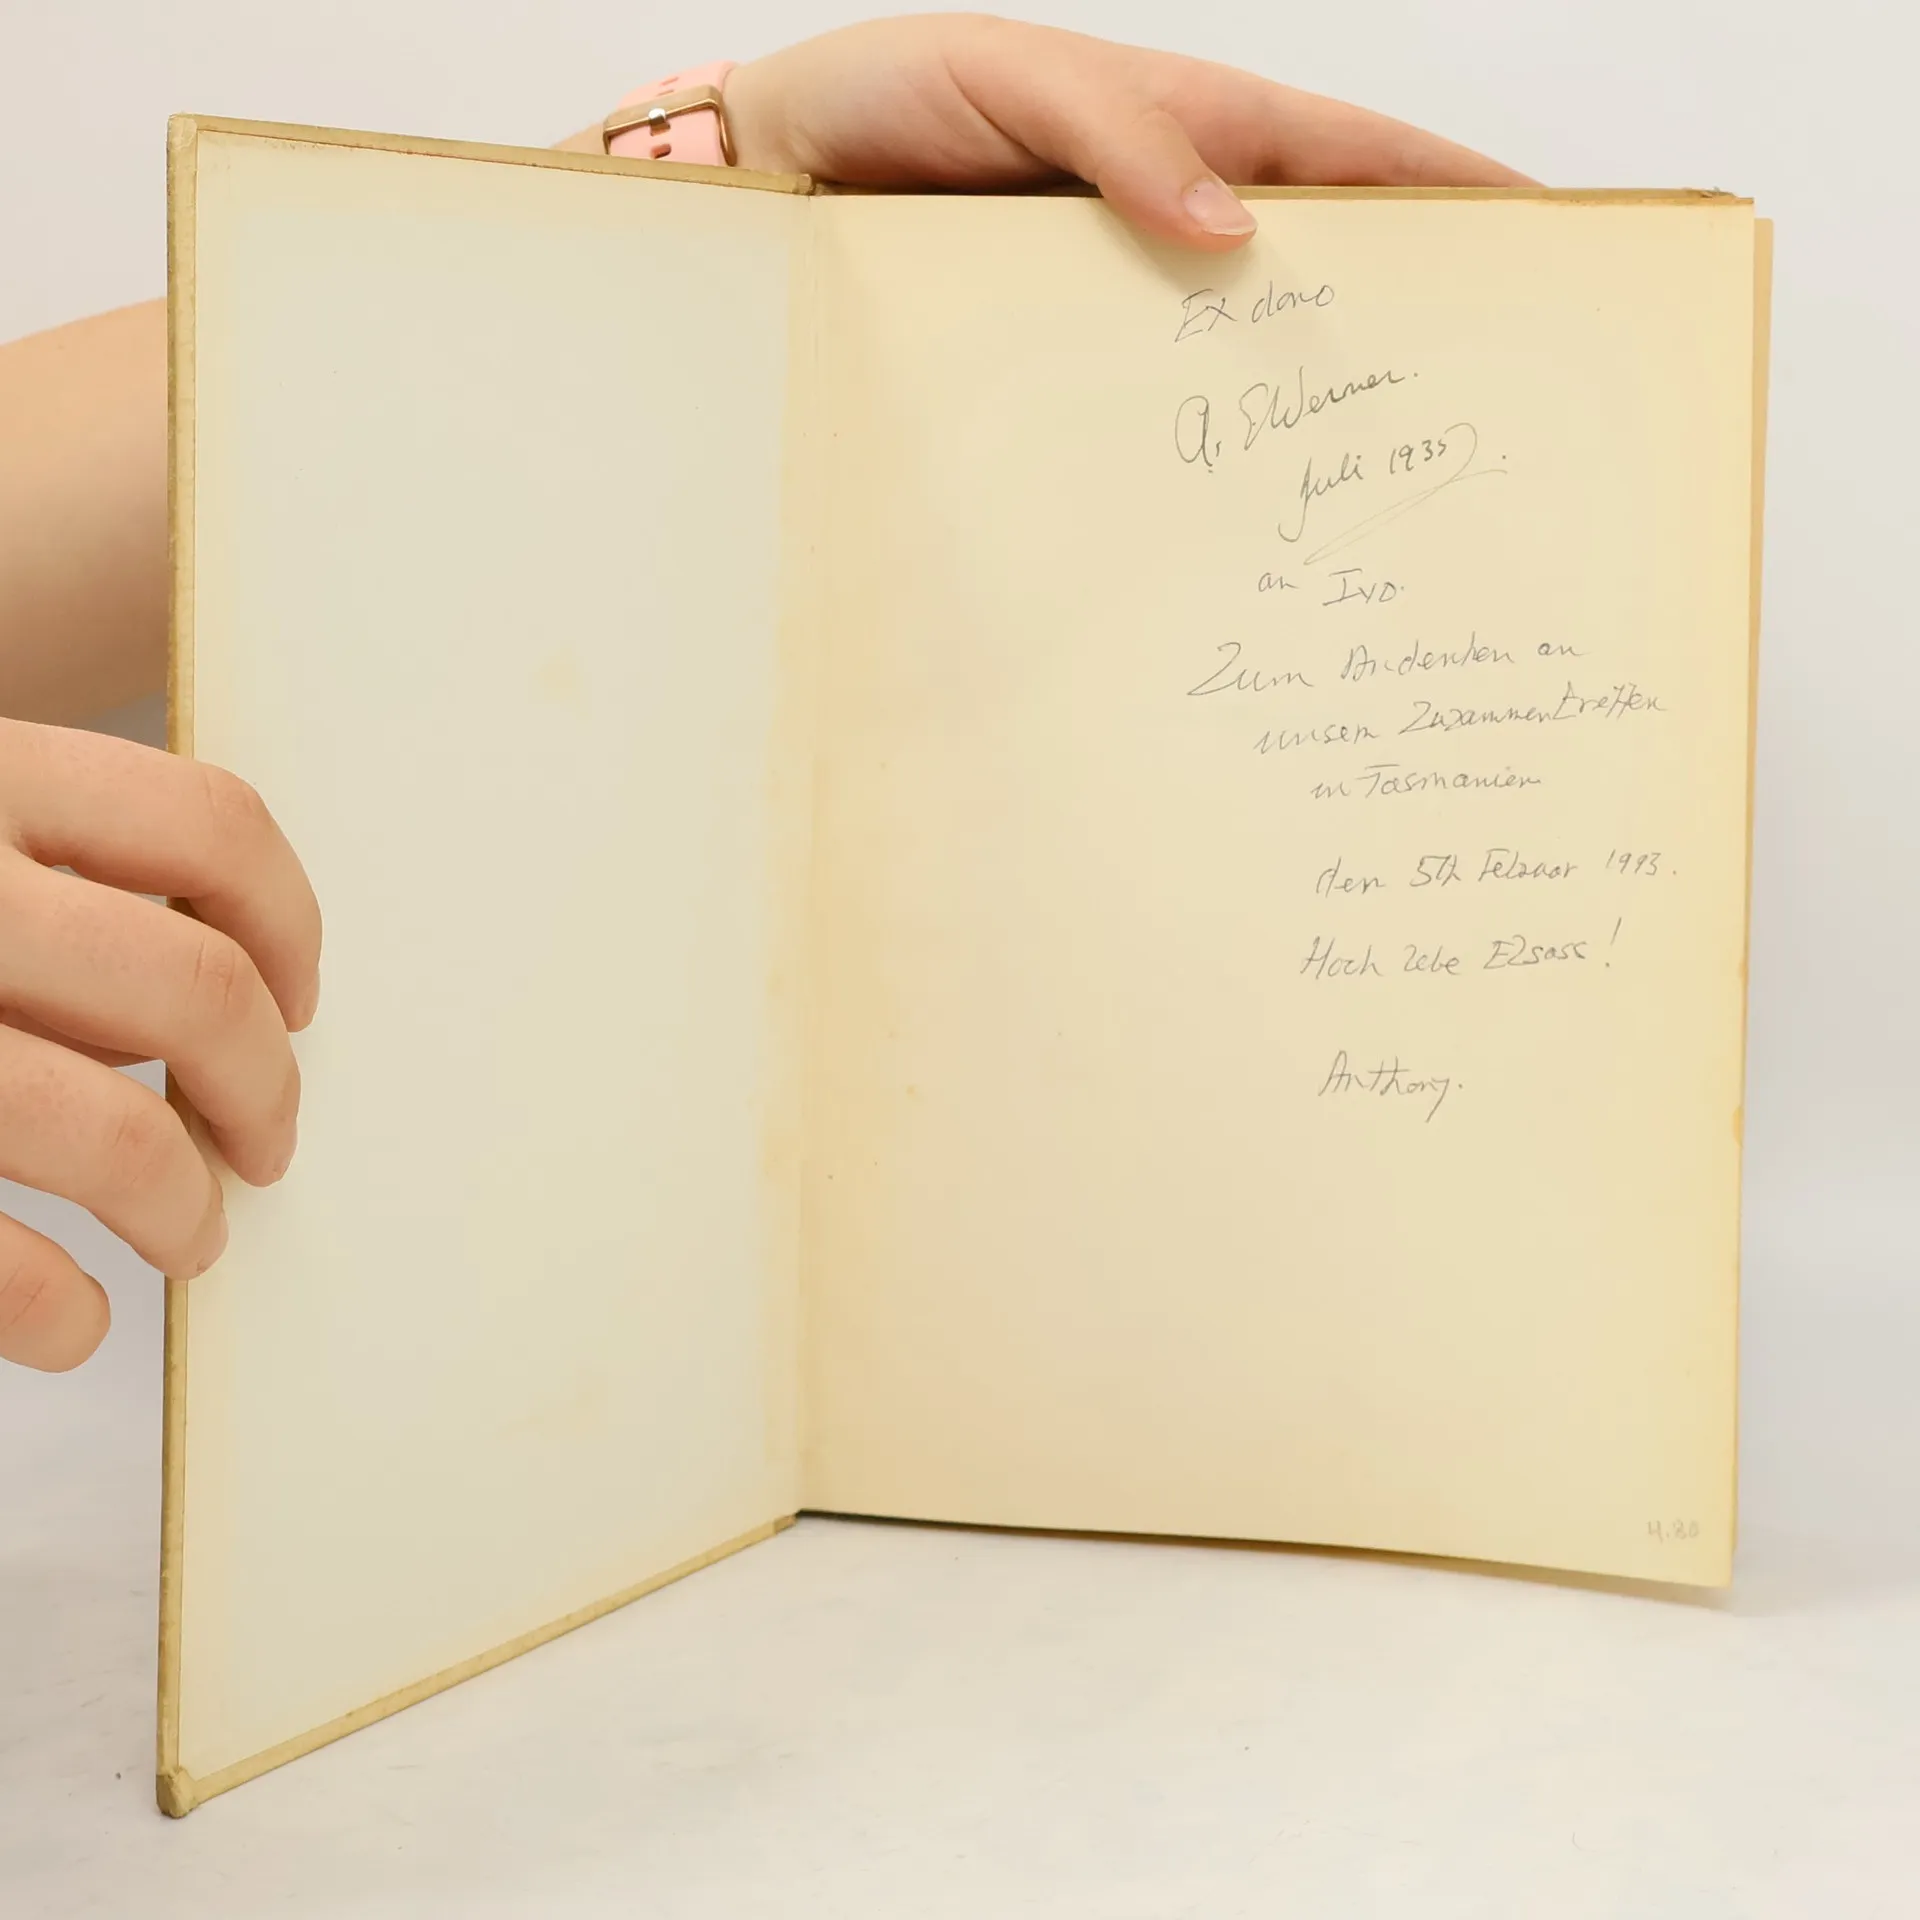 Ex dono
A. E Werner.
Juli 1935.
an Ivo.
Zum Andenken an
unsern Zusammentreffen
in Tasmanien
den 5th Februar 1993.
Hoch lebe Elsass!
Anthony.
4.80